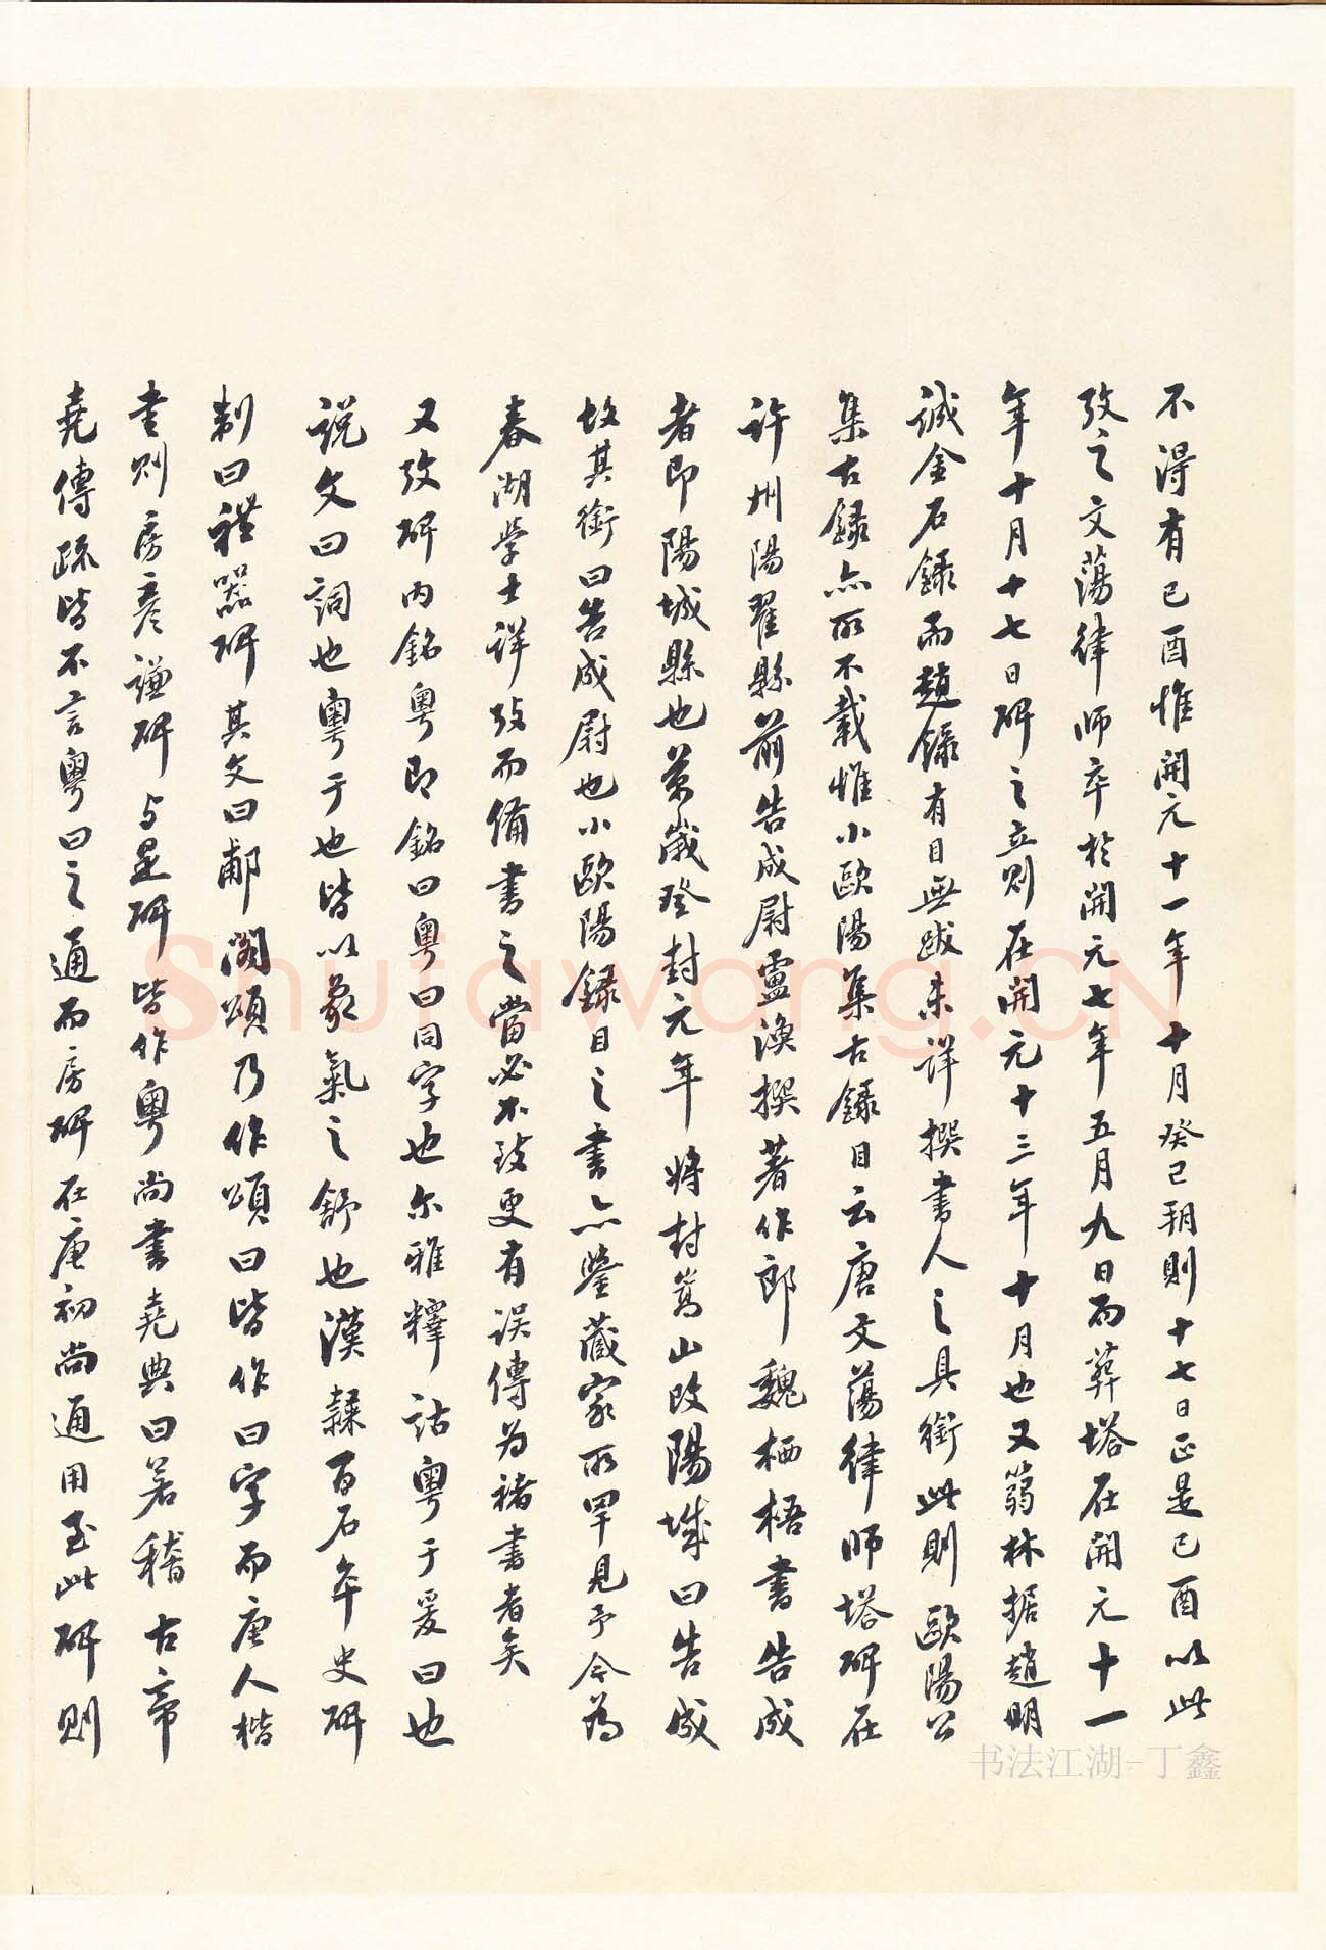 不得有已酉惟開元十一年十月癸巳朔則十七日正是己酉以此
攷之文蕩律師卒於開元七年五月九日而葬塔在開元十一
年十月十七日碑之立則在開元十三年十月也又篛林据趙明
誠金石録而趙錄有目無跋未詳撰書人之具銜此則歐陽公
集古録亦所不載惟小歐陽集古錄目云唐文蕩律師塔碑在
許州陽翟縣前告成尉盧渙撰著作郎魏栖梧書告成
者即陽城縣也萬歲登封元年將封嵩山改陽城曰告成
故其銜曰告成尉也小歐陽録目之書亦鑒藏家所罕見予今為
春湖學士詳攷而備書之當必不致更有誤傳为褚書者矣
又攷碑内銘粤即銘曰粤曰同字也尔雅釋詁粤于爰曰也
説文曰詞也粤于也皆以象氣之舒也漢隷百石卒史碑
制曰禮器碑其文曰郙閣頌乃作頌曰皆作曰字而唐人楷
書則房彥謙碑与是碑皆作粤尚書堯典曰若稽古帝
堯傳疏皆不言粤曰之通而房碑在唐初尚通用至此碑則
Shufawang.CN
书法江湖-丁鑫